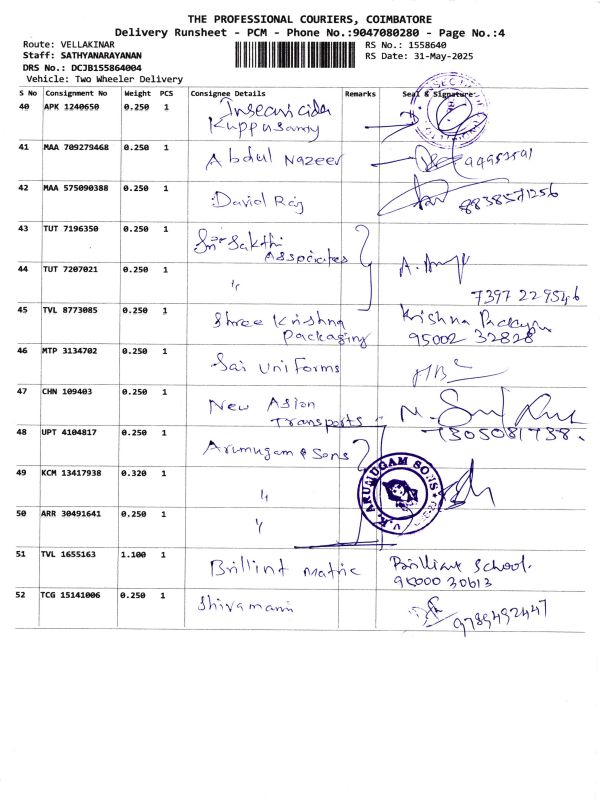 THE PROFESSIONAL COURIERS, COIMBATORE
Delivery Runsheet - PCM - Phone No.:9047080280 - Page No.:4
Route: VELLAKINAR
RS No.: 1558640
Staff: SATHYANARAYANAN
RS Date: 31-May-2025
DRS No.: DCJB155864004
Vehicle: Two Wheeler Delivery
S No Consignment No Weight PCS Consignee Details Remarks Seal & Signature
40 APK 1240650 0.250 1 Kuppusamy
41 MAA 709279468 0.250 1 Abdul Nazeer
42 MAA 575090388 0.250 1 David Raj 8838571256
43 TUT 7196350 0.250 1 Sri Sakthi
Associates
44 TUT 7207021 0.250 1 "
7397 229546
45 TVL 8773085 0.250 1 Shree Krishna
Packaging
Krishna
95002 32828
46 MTP 3134702 0.250 1 Sai Uniforms
47 CHN 109403 0.250 1 New Asian
Transports
7305081738.
48 UPT 4104817 0.250 1 Arumugam & Sons
49 KCM 13417938 0.320 1 "
ARUMUGAM SONS
50 ARR 30491641 0.250 1 "
51 TVL 1655163 1.100 1 Brillint Matric
Brilliant School.
52 TCG 15141006 0.250 1 Shivamani
9789492447